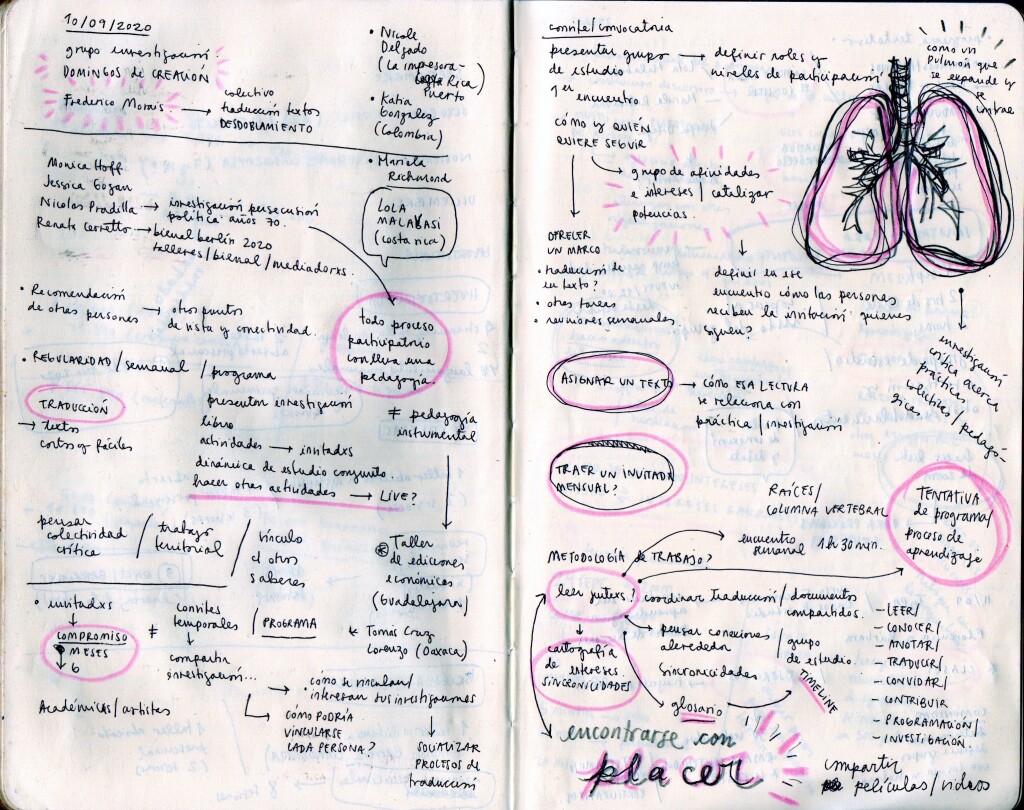 10/09/2020
grupo investigación:
DOMINGOS DE CREACIÓN
Frederico Morais → colectivo
traducción textos
DESDOBLAMIENTO
• Nicole
Delgado
(La impresora-
Puerto Rica)
• Katia
González
(Colombia)
• Mariela
Richmond
LOLA
MALABASI
(costa rica)
Monica Hoff
Jessica Gogan
Nicolas Pradilla → investigación persecusión
política años 70.
Renata Cervetto → bienal berlín 2020
talleres/bienal/mediadorxs.
• Recomendación
de otras personas → otros puntos
de vista y conectividad.
todo proceso
participatorio
conlleva una
pedagogía.
≠ pedagogía
instrumental
• REGULARIDAD/semanal/programa
TRADUCCIÓN
→ textos
cortos y fáciles
presentar investigación
libro
actividades → invitadxs
dinámica de estudio conjunto
hacer otras actividades → LIVE?
pensar
colectividad
crítica
/ trabajo
territorial
/ vínculo
c/ otros
saberes
⊛ Taller
de ediciones
económicas
(Guadalajara)
* Tomás Cruz
Lorenzo (Oaxaca)
• invitadxs
COMPROMISO
MESES
6
≠ convites
temporales
/ PROGRAMA
compartir
investigación...
Académicas/artistas
→ como se vinculan/
interesan sus investigaciones
CÓMO PODRÍA
VINCULARSE
CADA PERSONA?
SOCIALIZAR
PROCESOS DE
traducción
convite/convocatoria
presentar grupo → definir roles y
de estudio niveles de participación
1er encuentro
CÓMO Y QUIÉN
QUIERE SEGUIR
→ grupo de afinidades
e intereses/catalizar
potencias.
como un
Pulmón que
se expande y
se contrae
OFRECER
UN MARCO
• traducción de
un texto?
• otras tareas
• reuniones semanales.
definir en ese
encuentro cómo las personas
reciben la invitación: quienes
siguen?
investigación
crítica acerca
prácticas
artísticas/pedagó-
gicas
ASIGNAR UN TEXTO → CÓMO ESA LECTURA
se relaciona con
práctica/investigación
TRAER UN INVITADX
MENSUAL?
RAÍCES/
COLUMNA VERTEBRAL
TENTATIVA
de programa/
proceso de
aprendizaje
METODOLOGÍA de TRABAJO? → encuentro
semanal 1h 30 min.
leer juntxs? coordinar traducción/documentos
compartidos.
→ pensar conexiones/grupo
alrededor de estudio
sincronicidades
cartografía
de intereses
SINCRONICIDADES
glosario
TIMELINE
– LEER/
– CONOCER/
– ANOTAR/
– TRADUCIR/
– CONVIDAR/
– CONTRIBUIR
– PROGRAMACIÓN/
– INVESTIGACIÓN.
encontrarse con
placer
compartir
películas/videos